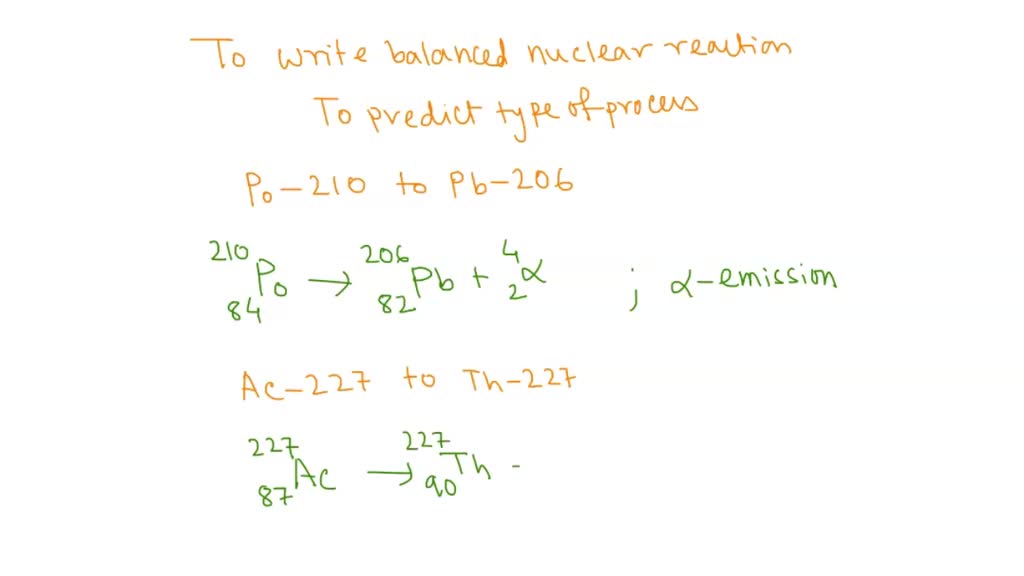 To write balanced nuclear reaction
To predict type of process
Po-210 to Pb-206
²¹⁰₈₄Po → ²⁰⁶₈₂Pb + ⁴₂α ; α-emission
Ac-227 to Th-227
²²⁷₈₇Ac → ²²⁷₉₀Th -